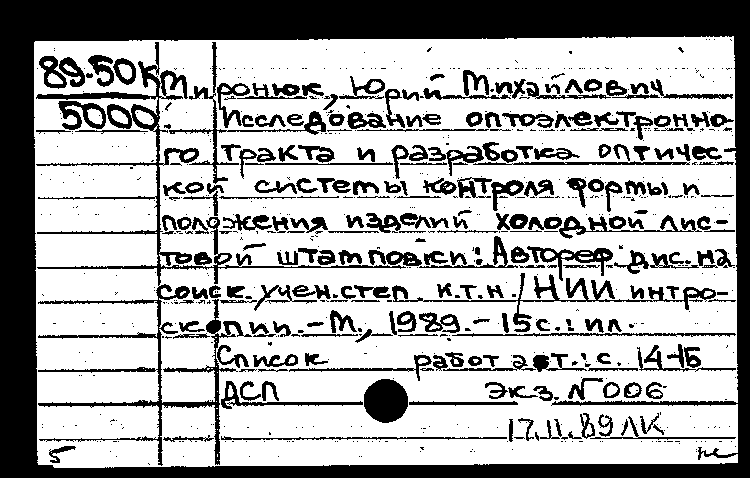 89-50К Миронюк, Юрий Михайлович
5000 : Исследование оптоэлектронно-
го тракта и разработка оптичес-
кой системы контроля формы и
положения изделий холодной лис-
товой штамповки: Автореф. дис. на
соиск. учен. степ. к.т.н. / НИИ интро-
скопии. - М., 1989. - 15 с. : ил.
Список работ авт.: с. 14-15
ДСП экз. № 006
17.11.89 ЛК
5